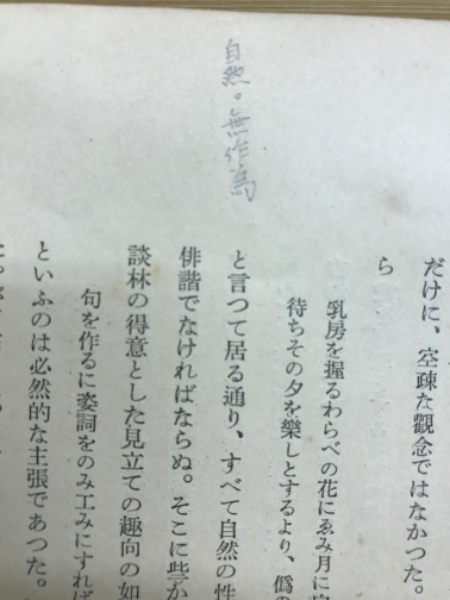 自然。無作為
だけに、空疎な觀念ではなかつた。
ら
乳房を握るわらべの花にゑみ月に
待ちその夕を樂しとするより、僞の
と言つて居る通り、すべて自然の性
俳諧でなければならぬ。そこに些か
談林の得意とした見立ての趣向の如
句を作るに姿詞をのみ工みにすれば
といふのは必然的な主張であつた。